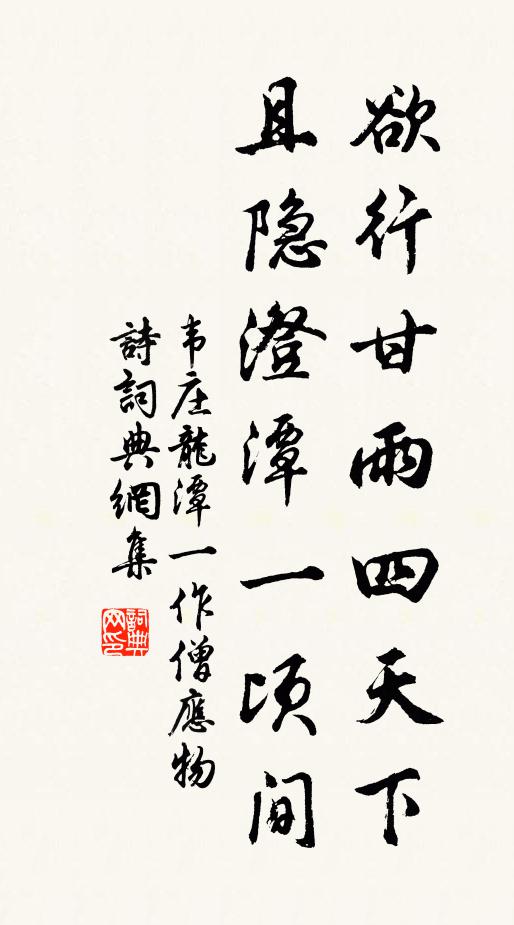 欲行甘雨四天下
且隐澄潭一顷间
韦庄龍潭一作僧應物
詩詞典網集
詞典网印